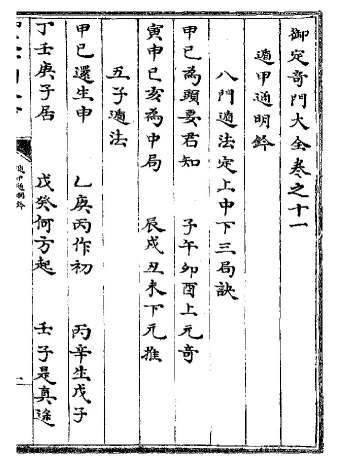 御定奇門大全卷之十一
遁甲通明鈐
八門遁法定上中下三局訣
甲巳為頭要君知 子午卯酉上元奇
寅申巳亥為中局 辰戌丑未下元推
五子遁法
甲巳還生甲 乙庚丙作初 丙辛生戊子
丁壬庚子居 戊癸何方起 壬子是真途
遁甲通明鈐
一